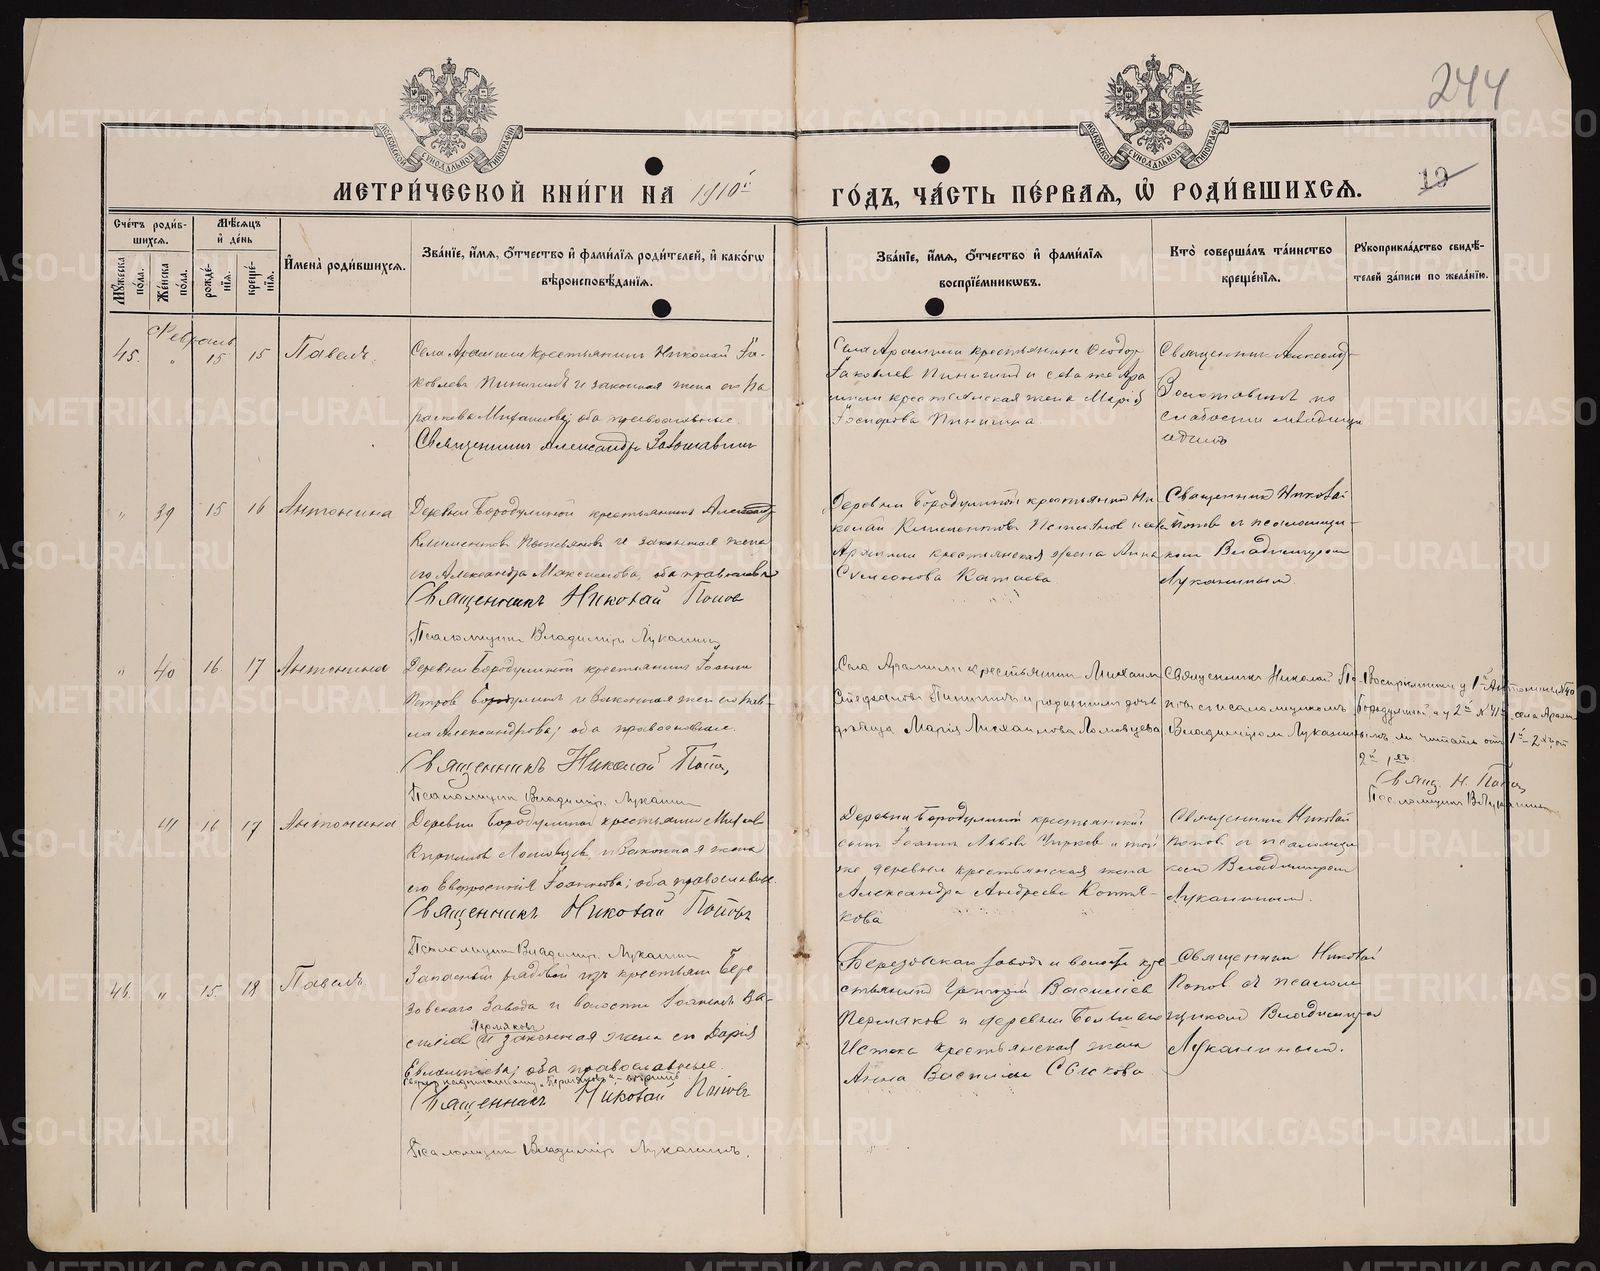 244
МОСКОВСКОЙ СѴНОДАЛЬНОЙ ТИПОГРАФІИ
МОСКОВСКОЙ СѴНОДАЛЬНОЙ ТИПОГРАФІИ
МЕТРИ́ЧЕСКОЙ КНИ́ГИ НА 1910й
ГО́ДЪ, ЧА́СТЬ ПЕ́РВАЯ, Ѡ РОДИ́ВШИХСЯ.
12
Сче́тъ роди́в-
шихся.
Мѣсяцъ
и де́нь
Му́жеска по́ла.
Же́нска по́ла.
рожде́-
нія.
креще́-
нія.
Имена̀ роди́вшихся.
Зва́ніе, и́мя, о́тчество и фами́лія роди́телей, и како́гѡ
вѣроисповѣ́данія.
Зва́ніе, и́мя, о́тчество и фами́лія
воспріе́мникѡвъ.
Кто̀ соверша́лъ та́инство
креще́нія.
Рукоприкла́дство свидѣ́-
телей за́писи по жела́нію.
Февраль
45. " 15 15 Павелъ.
Села Арамили крестьянинъ Николай Іа-
ковлевъ Пинигинъ и законная жена его Па
раскева; оба православные.
Священникъ Александръ
Села Арамили крестьянинъ Ѳеодоръ
Іаковлев Пинигинъ и села же Ара
мили крестьянская жена Марія
Пинигина.
Священник Александръ
по
слабости младенца
одинъ
" 39 15 16 Антонина
Деревни Бородулиной крестьянинъ Александръ
Климентовъ и законная жена
его Александра Максимова, оба православные
Священникъ Николай Попов
Псаломщикъ Владиміръ Луканин
Деревни Бородулиной крестьянинъ Ни
колай Климентовъ и села
Арамили крестьянская жена Анна
Симеонова Катаева
Священник Николай
Попов с псаломщи-
ком Владимиром
Луканиным
" 40 16 17 Антонина
Деревни Бородулиной крестьянинъ Іоаннъ
Петров Бородулинъ и законная жена его
Александрова; оба православные.
Священникъ Николай Попов,
Псаломщикъ Владиміръ Луканин
Села Арамили крестьянин Михаил
Стефанов Пинигинъ и дочь
девица Марія Михаилова Ломовцева
Священник Николай По-
пов с псаломщиком
Владиміром Луканиным
Восприемники у 1й Антонины №40
Бородулиной а у 2й №41й села Арами
ли читать от 1й - 2й, от
2й 1я.
Свящ. Н. Попов,
Псаломщикъ В. Луканин
" 41 16 17 Антонина
Деревни Бородулиной крестьянин Михаил
Кириллов Ломовцев и законная жена
его Евфросинія Іоаннова; оба православные.
Священникъ Николай Поповъ
Псаломщикъ Владиміръ Луканин
Деревни Бородулиной крестьянский
сын Іоанн Львов Чирков и той
же деревни крестьянская жена
Александра Андреева Котя-
кова
Священник Николай
Попов с псаломщи
ком Владимиром
Луканиным.
46. " 15. 18 Павелъ
Запасный рядовой изъ крестьян Бере
зовскаго Завода и волости Іоаннъ Ва-
Пермяковъ
силіев и законная жена его Дарія
оба православные.
Священникъ Николай Поповъ
Псаломщикъ Владиміръ Луканинъ.
Березовскаго завода и волости кре
стьянинъ Григорій Василіев
Пермяков и деревни Большаго
Истока крестьянская жена
Анна Василіева Сыскова
Священник Николай
Попов с псалом
щиком Владимиром
Луканиным.